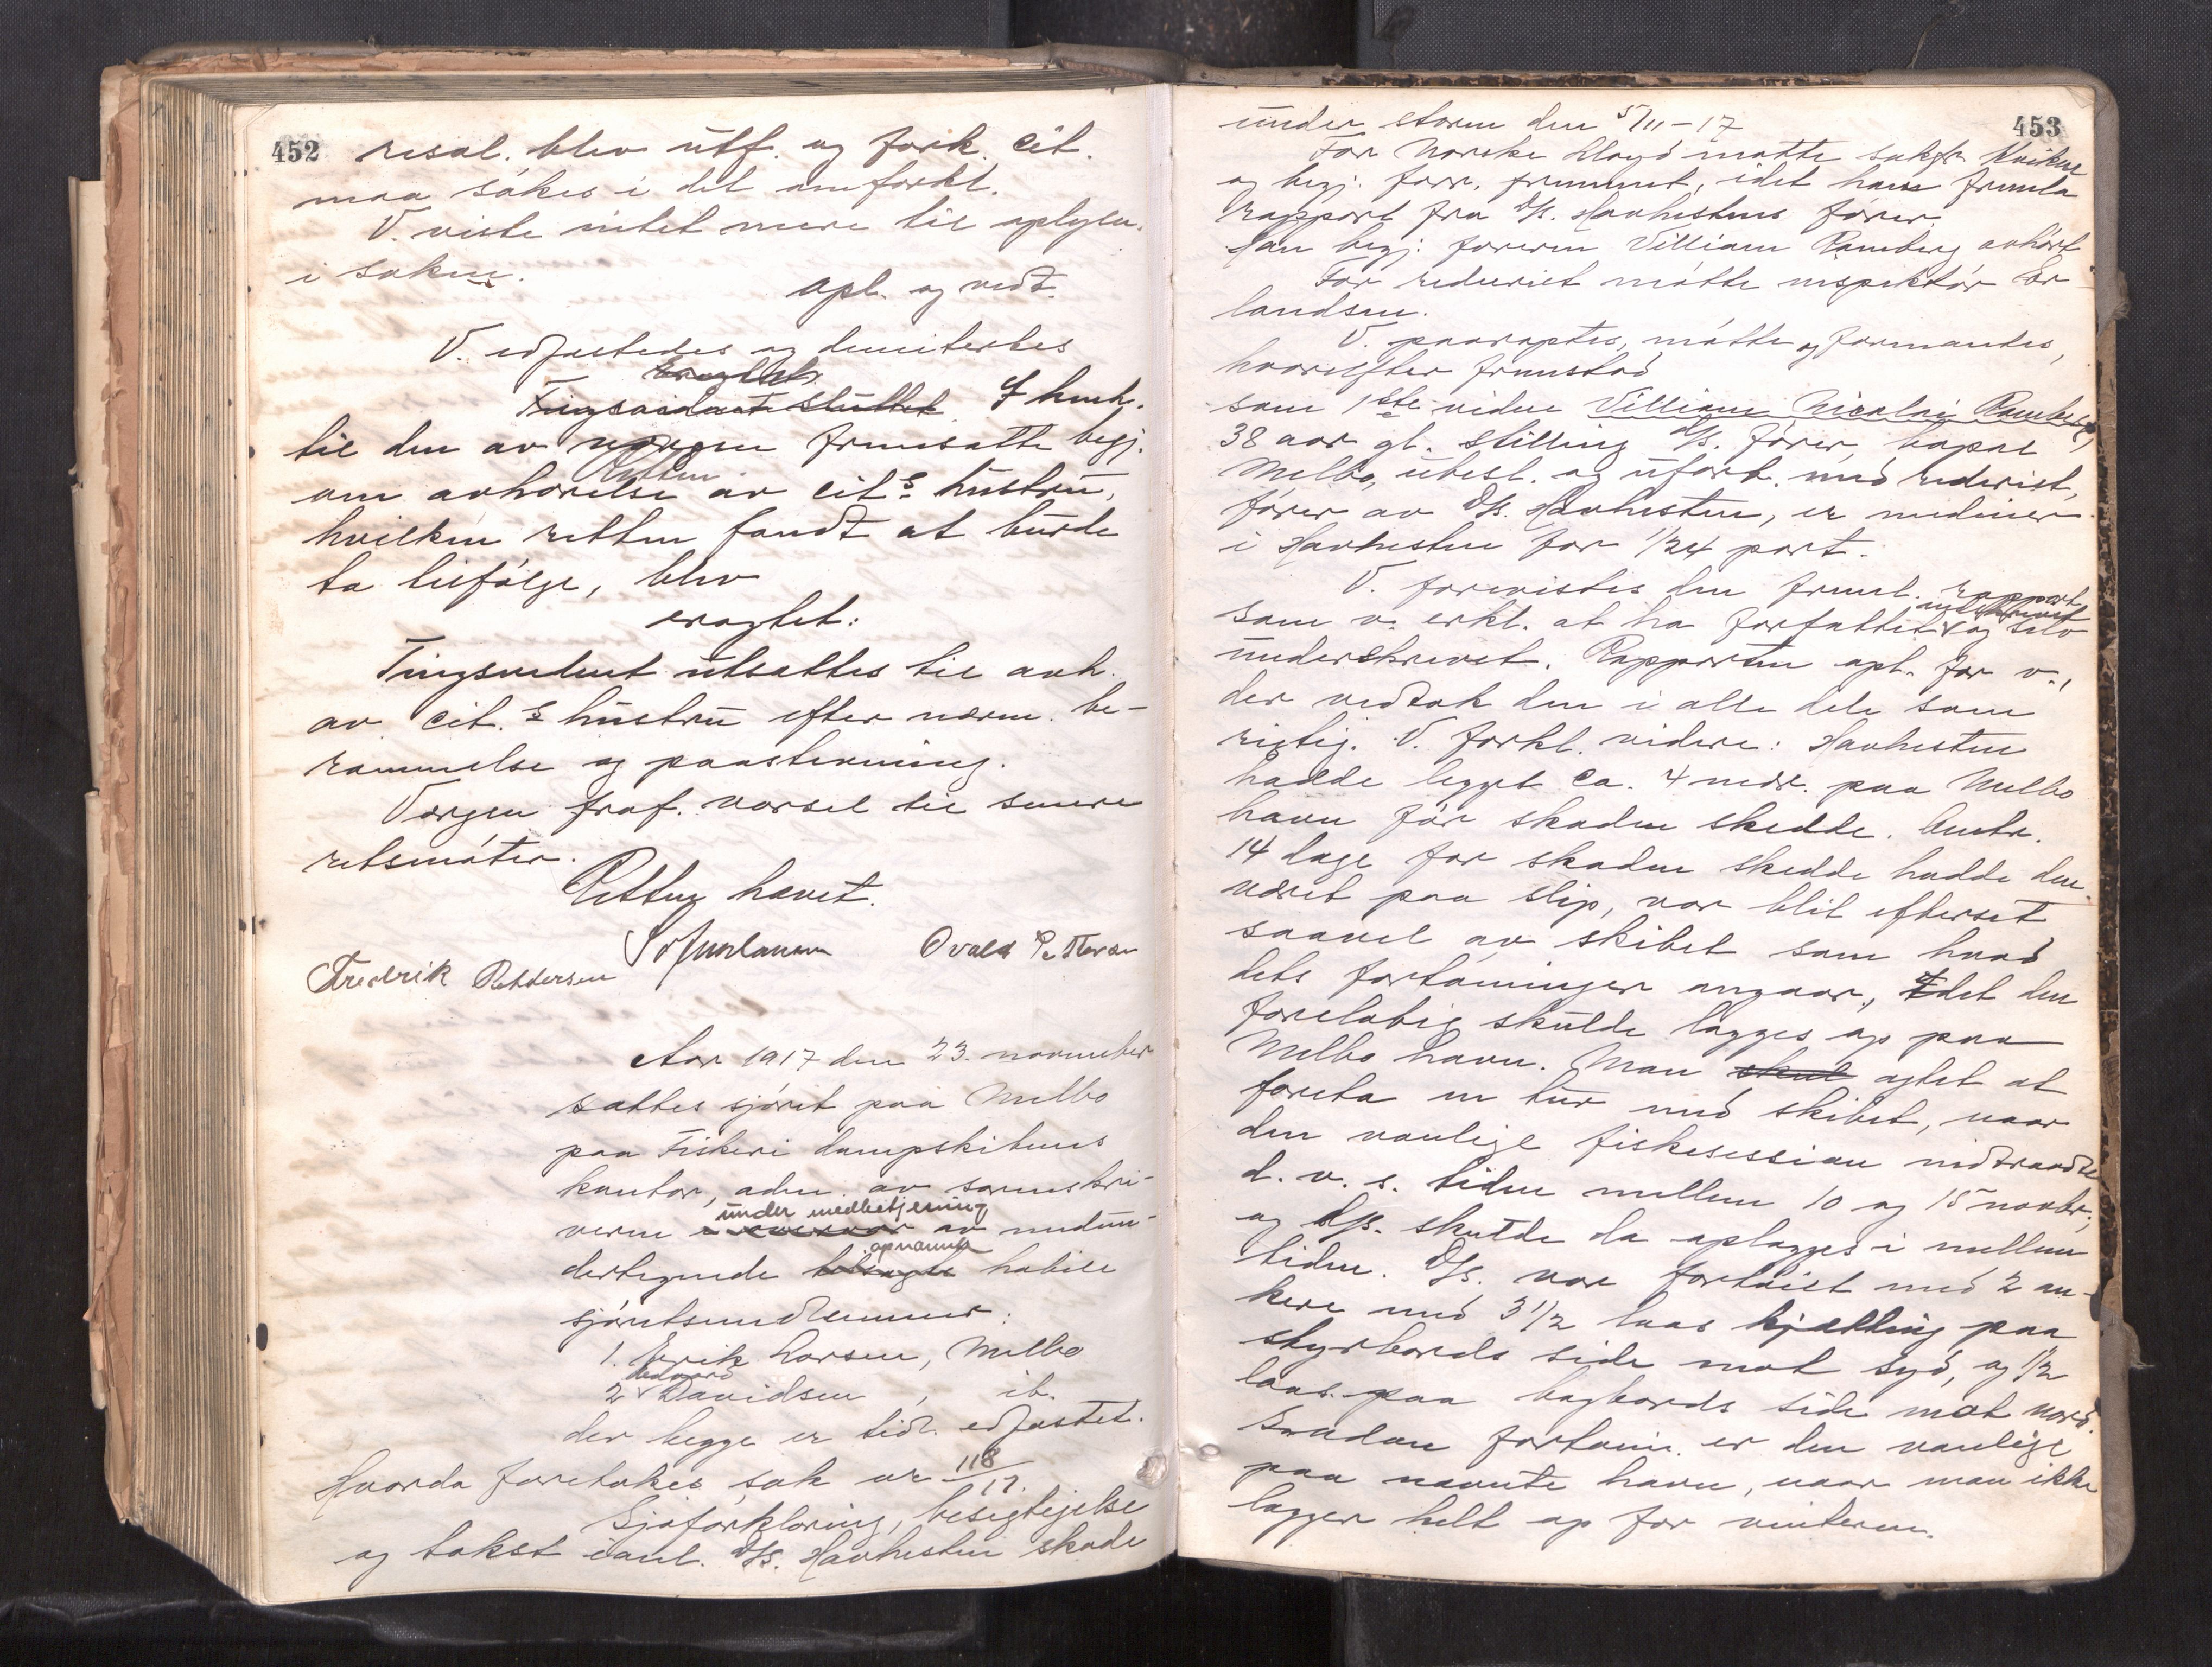 452
resol. blev utf. og fork. cit.
maa søkes i det anførkl.
V. viste intet mere til oplysn.
i saken.
opl. og vedt.
V. edfæstedes og dimitertes
eragtet
Tingsvidnet sluttet I henh.
til den av vergen fremsatte begj.
retten
om avhørelse av cit.s hustru,
hvilken retten fandt at burde
ta tilfølge, blev
eragtet:
Tingsvidnet utsattes til avh.
av cit.s hustru efter nærm. be-
rammelse og paastevning.
Vergen fraf. varsel til senere
retsmøter.
Retten hævet.
Ovald Pettersen
Fredrik Pettersen
Aar 1917 den 23. november
sattes sjøret paa Melbo
paa Fiskeridampskibenes
kontor, adm. av sorenskri-
under medbetjening
veren av nedun-
opnævnte
dertegnede tilsagte habile
sjøretsmedlemmer:
1. Erik Larsen, Melbo
Edvard
2 Davidsen, ib.
der begge er tidl. edfæstet.
Hvorda foretokes sak nr 118/17.
Sjøforklaring, besigtigelse
og takst anl. D/s. Havhesten skade
453
under storm den 5/11-17
For Norske Lloyd møtte sakf.
og begj. forr. fremmet, idet han fremla
rapport fra D/s. Havhestens fører.
Han begj. føreren Villiam Ramberg avhørt
For rederiet møtte inspektør Er-
landsen.
V. paaroptes, møtte og formantes,
hvorefter fremstod
som 1ste vidne Villiam Nicolai Ramberg,
38 aar gl. stilling D/s. fører, bopæl
Melbo, ubesl. og uforb. med rederiet,
fører av D/s. Havhesten, er medeier
i Havhesten for 1/24 part.
V. forevistes den freml. rapport
som v. erkl. at ha forfattet og selv
underskrevet. Rapporten opl. for v.,
der vedtok den i alle dele som
rigtig. V. forkl. videre: Havhesten
hadde ligget ca. 4 mdr. paa Melbo
havn før skaden skedde. Omtr.
14 dage før skaden skedde hadde den
været paa slip, var blit efterset
saavel av skibet som hvad
dets fortøininger angaar, idet den
foreløbig skulde lægges op paa
Melbo havn. Man skul agtet at
foreta en tur med skibet, naar
den vanlige fiskesession indtraadte
d. v. s. tiden mellem 10 og 15 novbr.,
og D/s. skulde da oplægges i mellem-
tiden. D/s. var fortøiet med 2 an-
kere med 3 1/2 laas kjætting paa
styrbords side mot syd, og 1/2
laas paa bagbords side mot nord.
Saadan fortøin. er den vanlige
paa nævnte havn, naar man ikke
lægger helt op for vinteren.